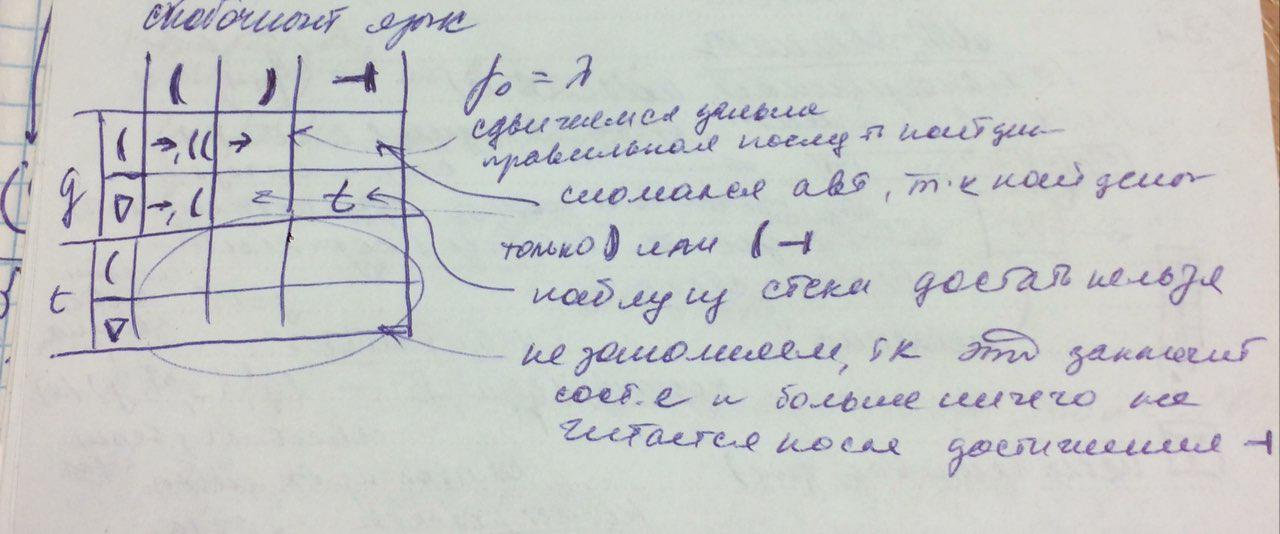 скобочный язык
( ) ⊣
γ₀ = λ
сдвигаемся дальше
g ( →,(( →
правильная послед найден
∇ →,( t
сломался авт, т.к найдено
только ) или ( ⊣
t (
из стека достать нельзя
∇
не заполняем, тк это заключит
сост. е и больше ничего не
читается после достижения ⊣